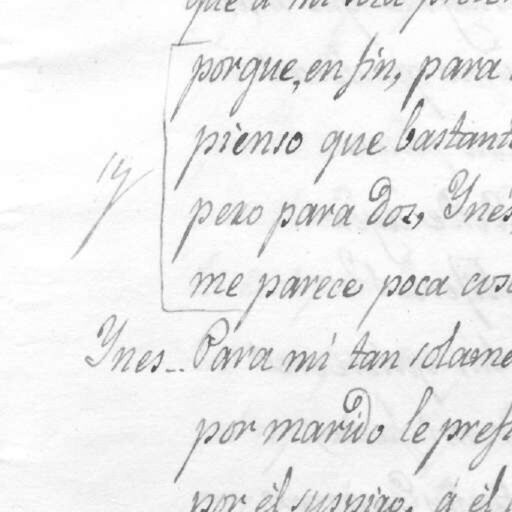 que á mi sola
porque, en fin, para
pienso que bastant
pero para dos, Ynés,
me parece poca cosa
Ynes.. Para mí tan solame
por marido le prefi
por él suspiro, á él